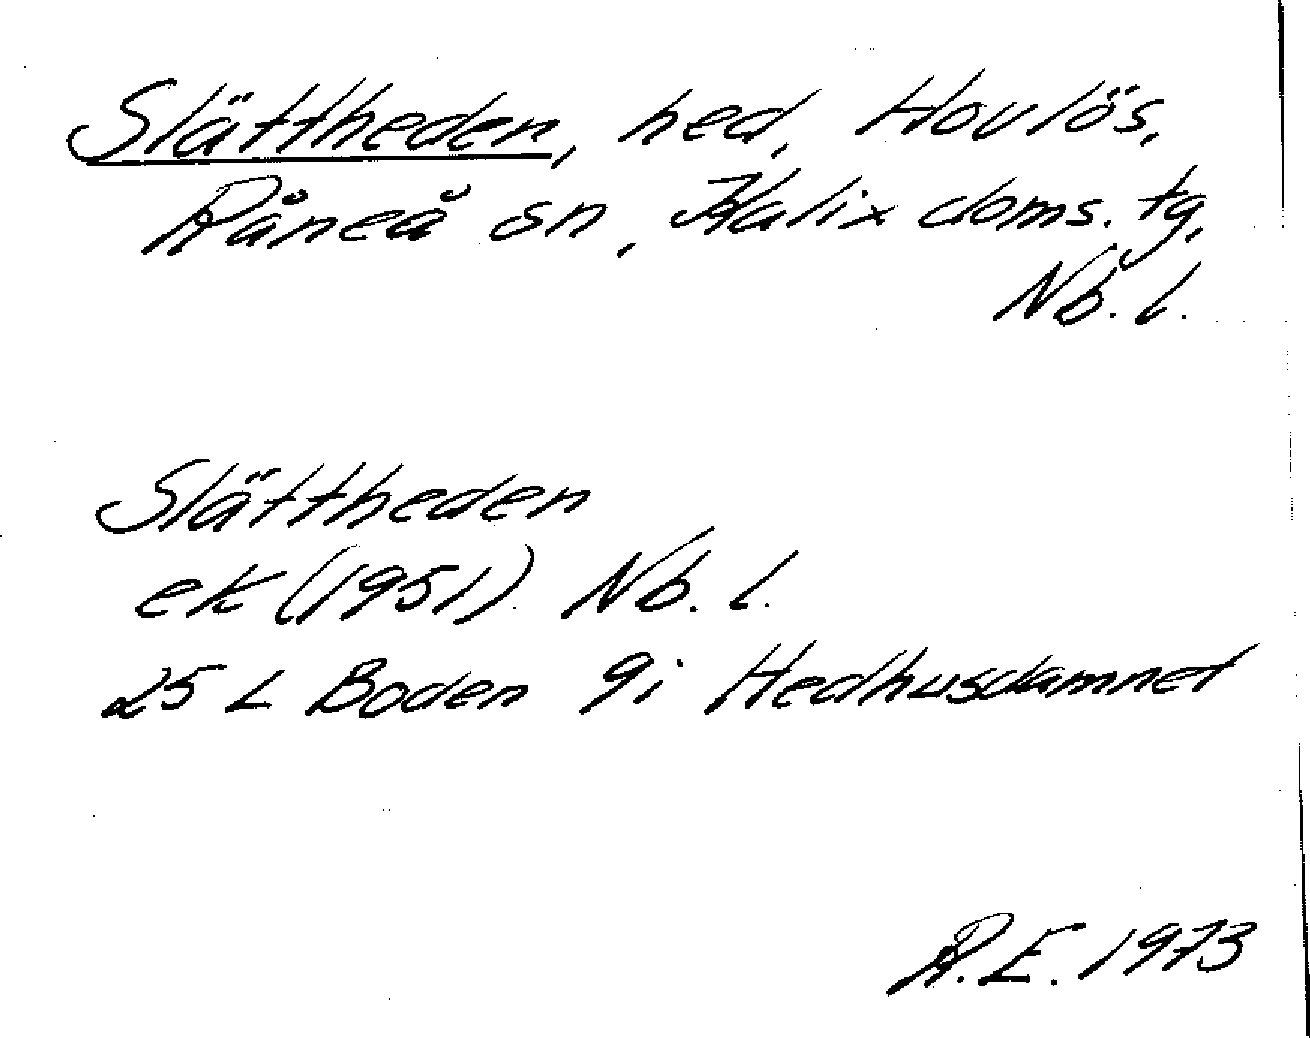 Slättheden, hed, Hovlös,
Råneå sn, Kalix doms. tg,
Nb. l.
Slättheden
ek (1951). Nb. l.
25 L Boden 9i Hedhusdamnet
R.E. 1973